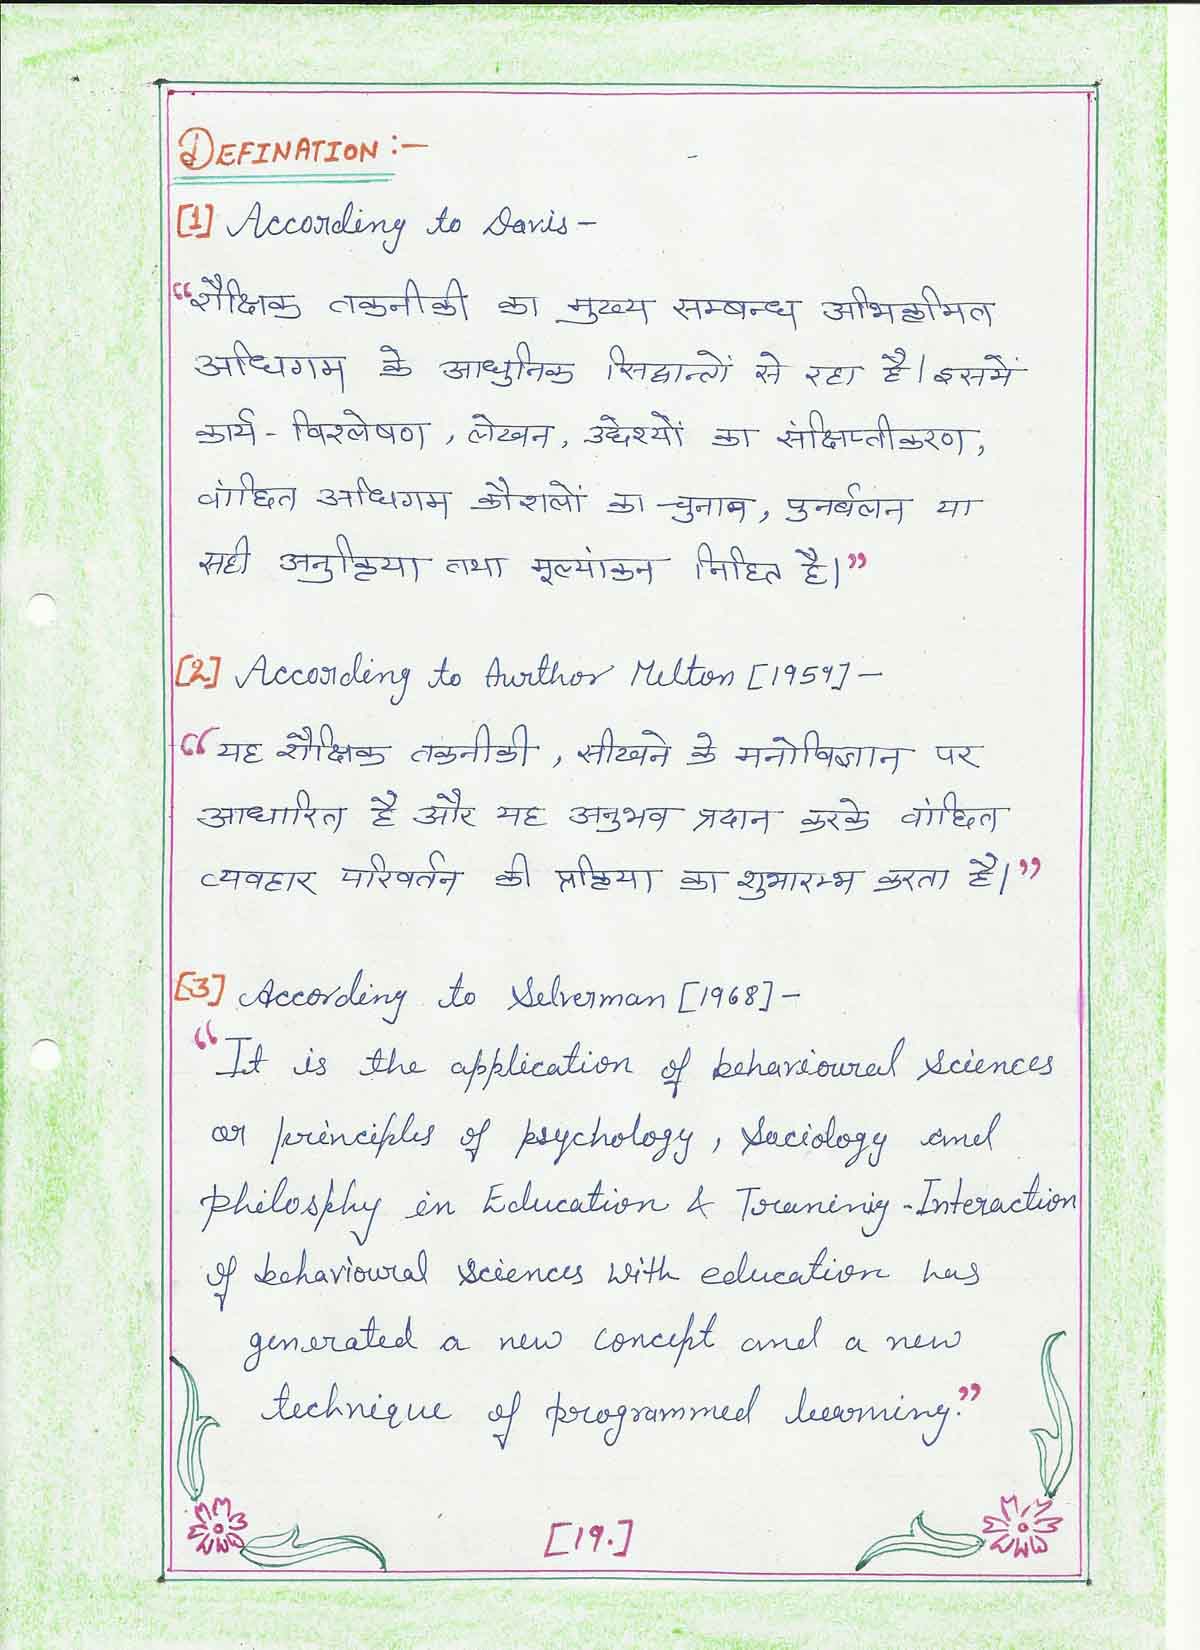 DEFINATION :-
[1] According to Davis -
“शैक्षिक तकनीकी का मुख्य सम्बन्ध अभिक्रमित
अधिगम के आधुनिक सिद्वान्तों से रहा है। इसमें
कार्य - विश्लेषण , लेखन, उद्देश्यों का संक्षिप्तीकरण,
वांछित अधिगम कौशलों का चुनाव, पुनर्बलन या
सही अनुक्रिया तथा मूल्यांकन निहित है।”
[2] According to Aurthor Melton [1959] -
“यह शैक्षिक तकनीकी , सीखने के मनोविज्ञान पर
आधारित है और यह अनुभव प्रदान करके वांछित
व्यवहार परिवर्तन की प्रक्रिया का शुभारम्भ करता है।”
[3] According to Selverman [1968] -
“It is the application of behavioural sciences
or principles of psychology, Sociology and
philosphy in Education & Traninig - Interaction
of behavioural sciences with education has
generated a new concept and a new
technique of programmed learning.”
[19.]